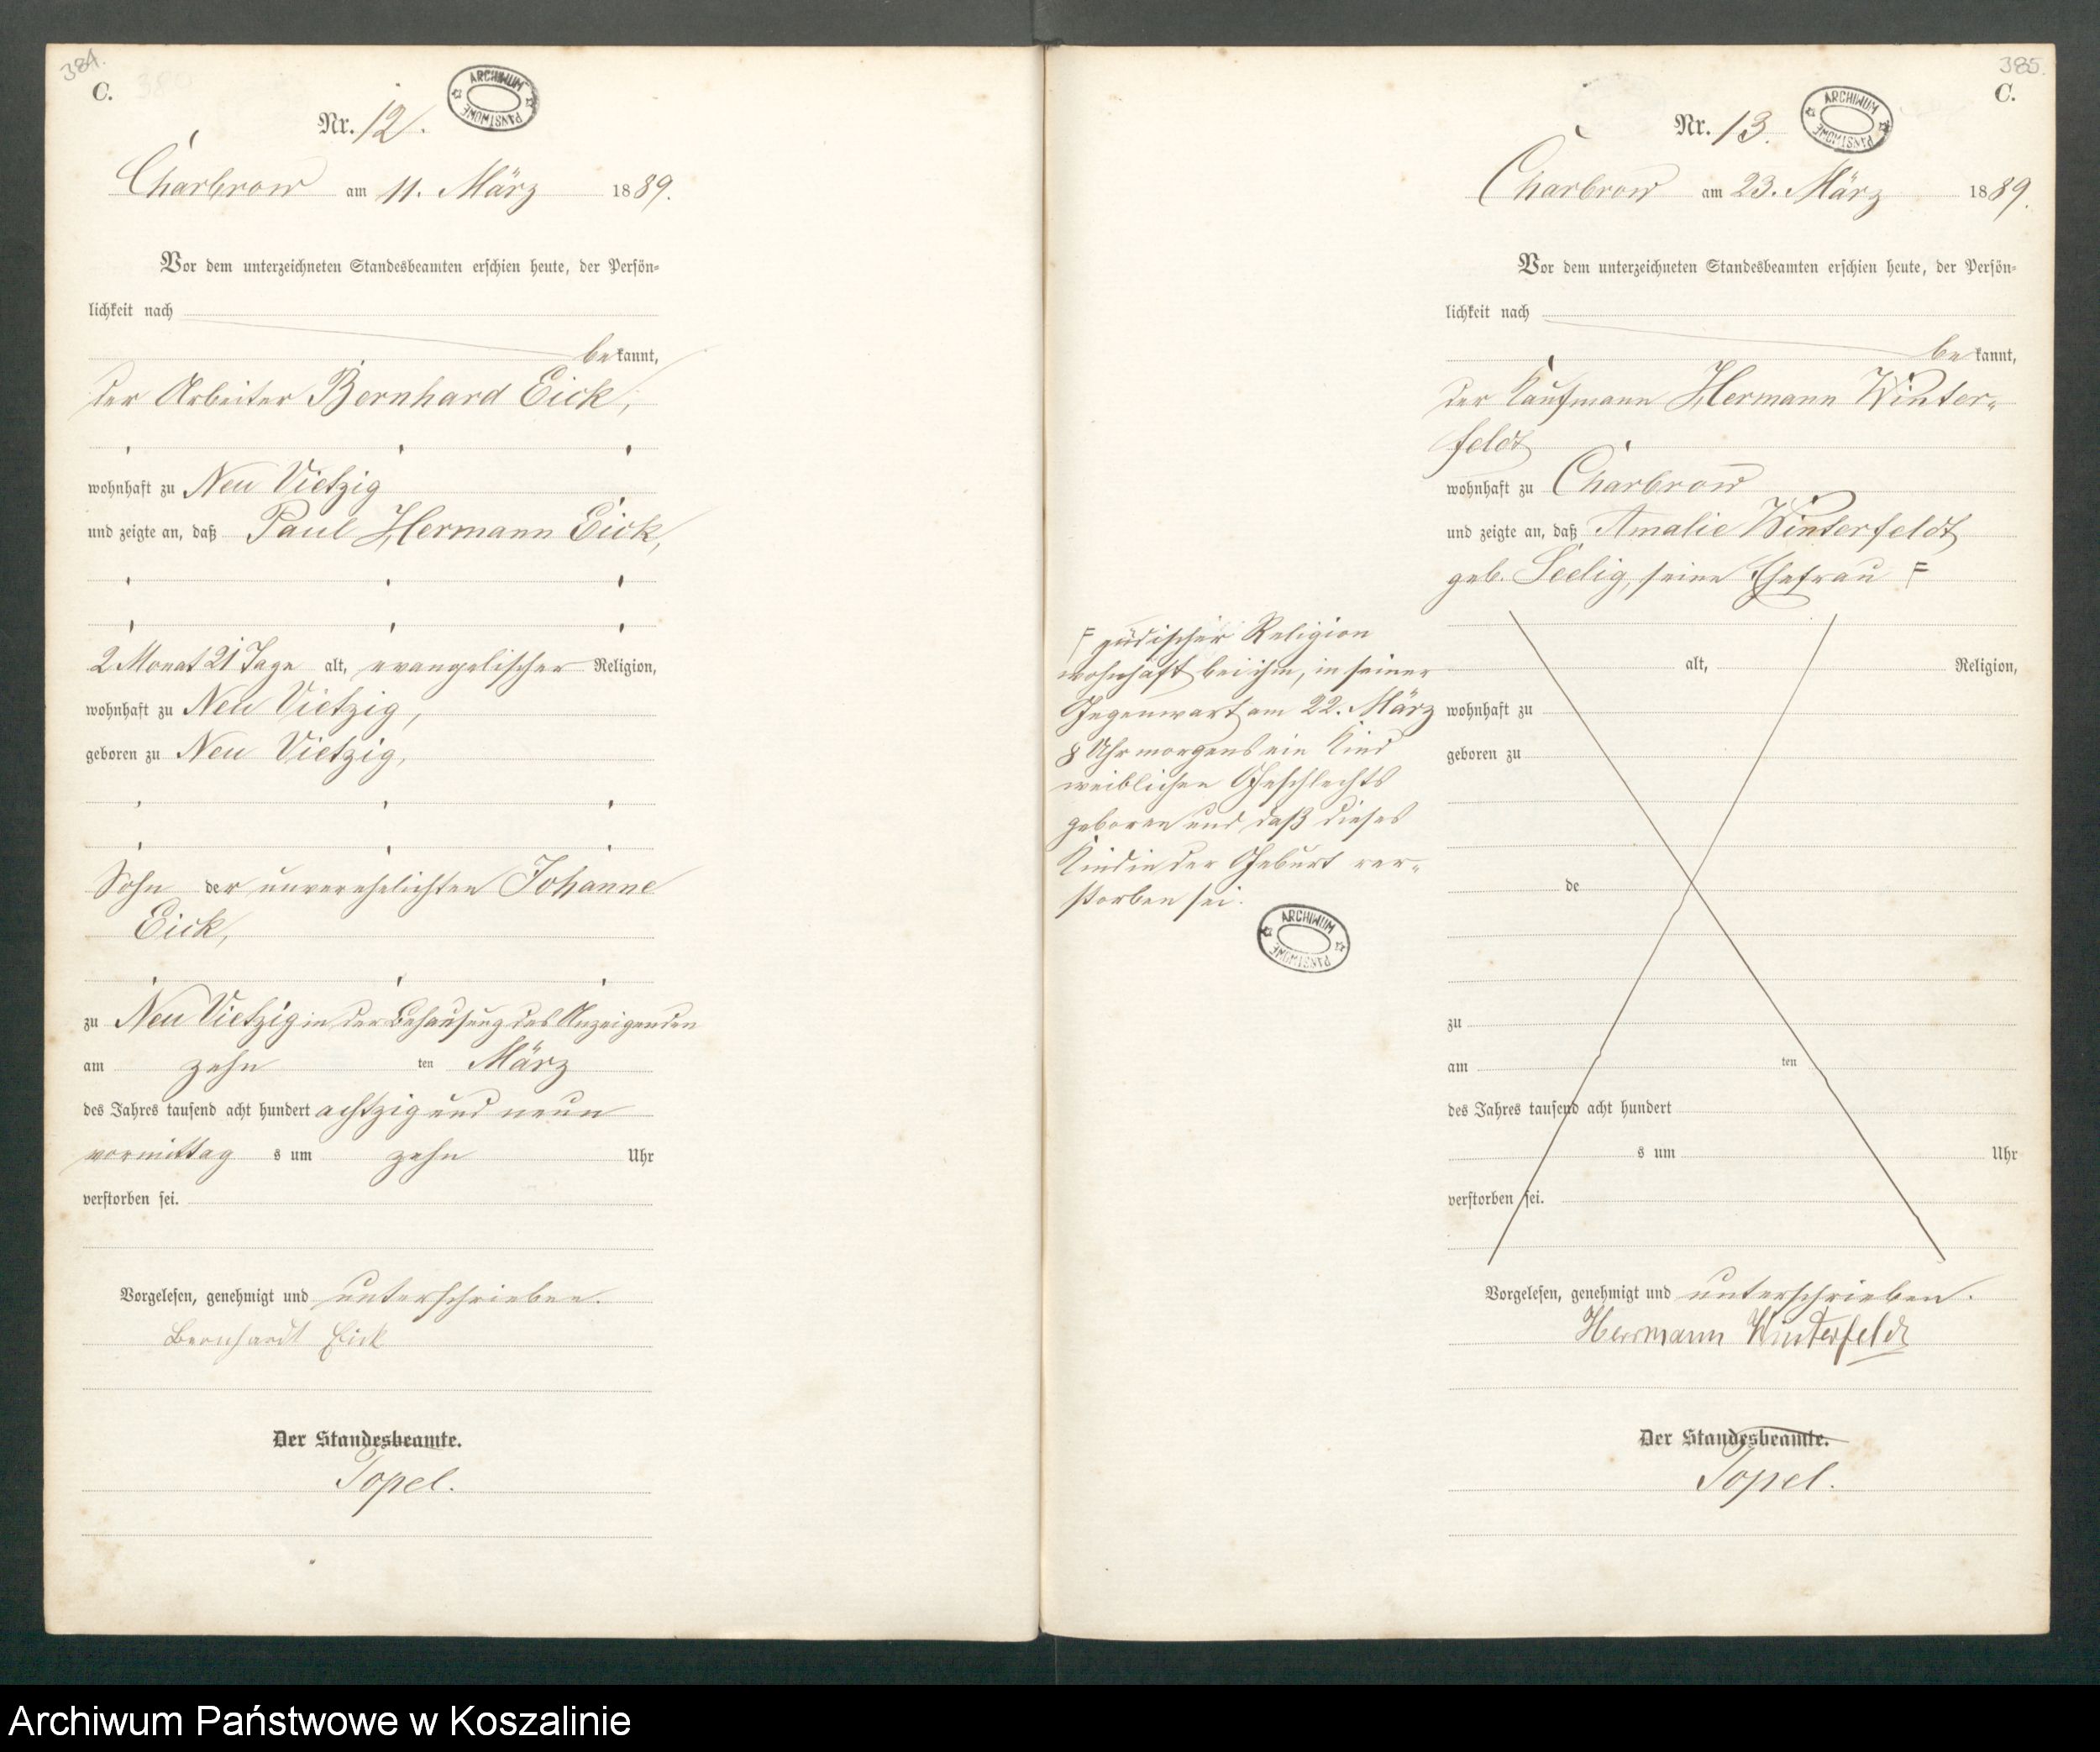 384.
C.
ARCHIWUM PAŃSTWOWE
Nr. 12.
Charbrow am 11. März 1889.
Vor dem unterzeichneten Standesbeamten erschien heute, der Persön-
lichkeit nach
bekannt,
der Arbeiter Bernhard Eick,
wohnhaft zu Neu Vietzig
und zeigte an, daß Paul Hermann Eick,
2 Monat 21 Tage alt, evangelischer Religion,
wohnhaft zu Neu Vietzig,
geboren zu Neu Vietzig,
Sohn der unverehelichten Johanne
Eick,
zu Neu Vietzig in der Behausung des Anzeigenden
am zehn ten März
des Jahres tausend acht hundert achtzig und neun
vormittag s um zehn Uhr
verstorben sei.
Vorgelesen, genehmigt und unterschrieben.
Bernhardt Eick
Der Standesbeamte.
Topel.
385.
C.
ARCHIWUM PAŃSTWOWE
Nr. 13.
Charbrow am 23. März 1889.
Vor dem unterzeichneten Standesbeamten erschien heute, der Persön-
lichkeit nach
bekannt,
der Kaufmann Hermann Winter-
feldt
wohnhaft zu Charbrow
und zeigte an, daß Amalie Winterfeldt
geb. Seelig, seine Ehefrau F
F jüdischer Religion
wohnhaft bei ihm, in seiner
Gegenwart am 22. März
8 Uhr morgens ein Kind
weiblichen Geschlechts
geboren und daß dieses
Kind in der Geburt ver-
storben sei.
ARCHIWUM PAŃSTWOWE
alt, Religion,
wohnhaft zu
geboren zu
de
zu
am ten
des Jahres tausend acht hundert
s um Uhr
verstorben sei.
Vorgelesen, genehmigt und unterschrieben.
Herrmann Winterfeldt
Der Standesbeamte.
Topel.
Archiwum Państwowe w Koszalinie